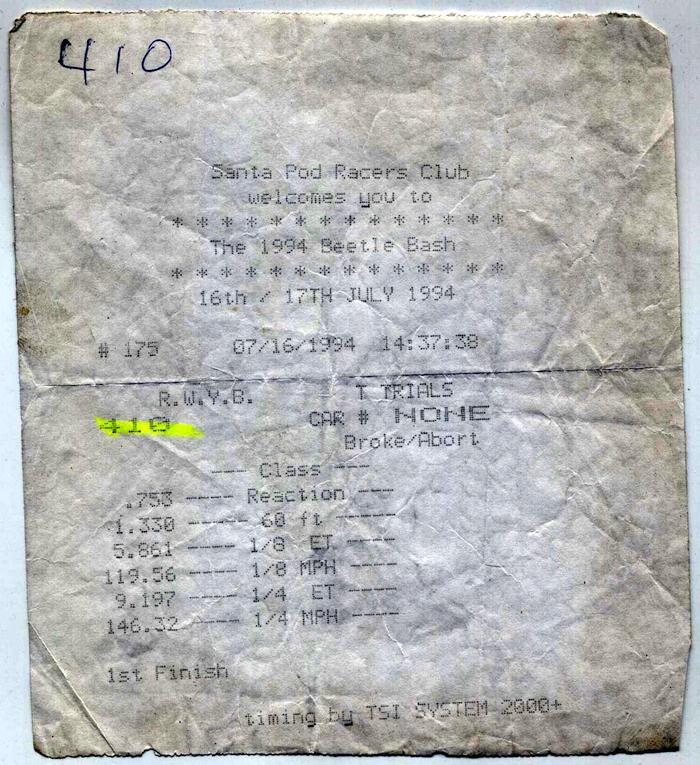 410
Santa Pod Racers Club
welcomes you to
* * * * * * * * * * * * * *
The 1994 Beetle Bash
* * * * * * * * * * * * * *
16th / 17TH JULY 1994
# 175 07/16/1994 14:37:38
R.W.Y.B. T TRIALS
410 CAR # NONE
Broke/Abort
--- Class ---
.753 ---- Reaction ---
1.330 ----- 60 ft -----
5.861 ---- 1/8 ET ----
119.56 ---- 1/8 MPH ----
9.197 ---- 1/4 ET ----
146.32 ---- 1/4 MPH ----
1st Finish
timing by TSI SYSTEM 2000+